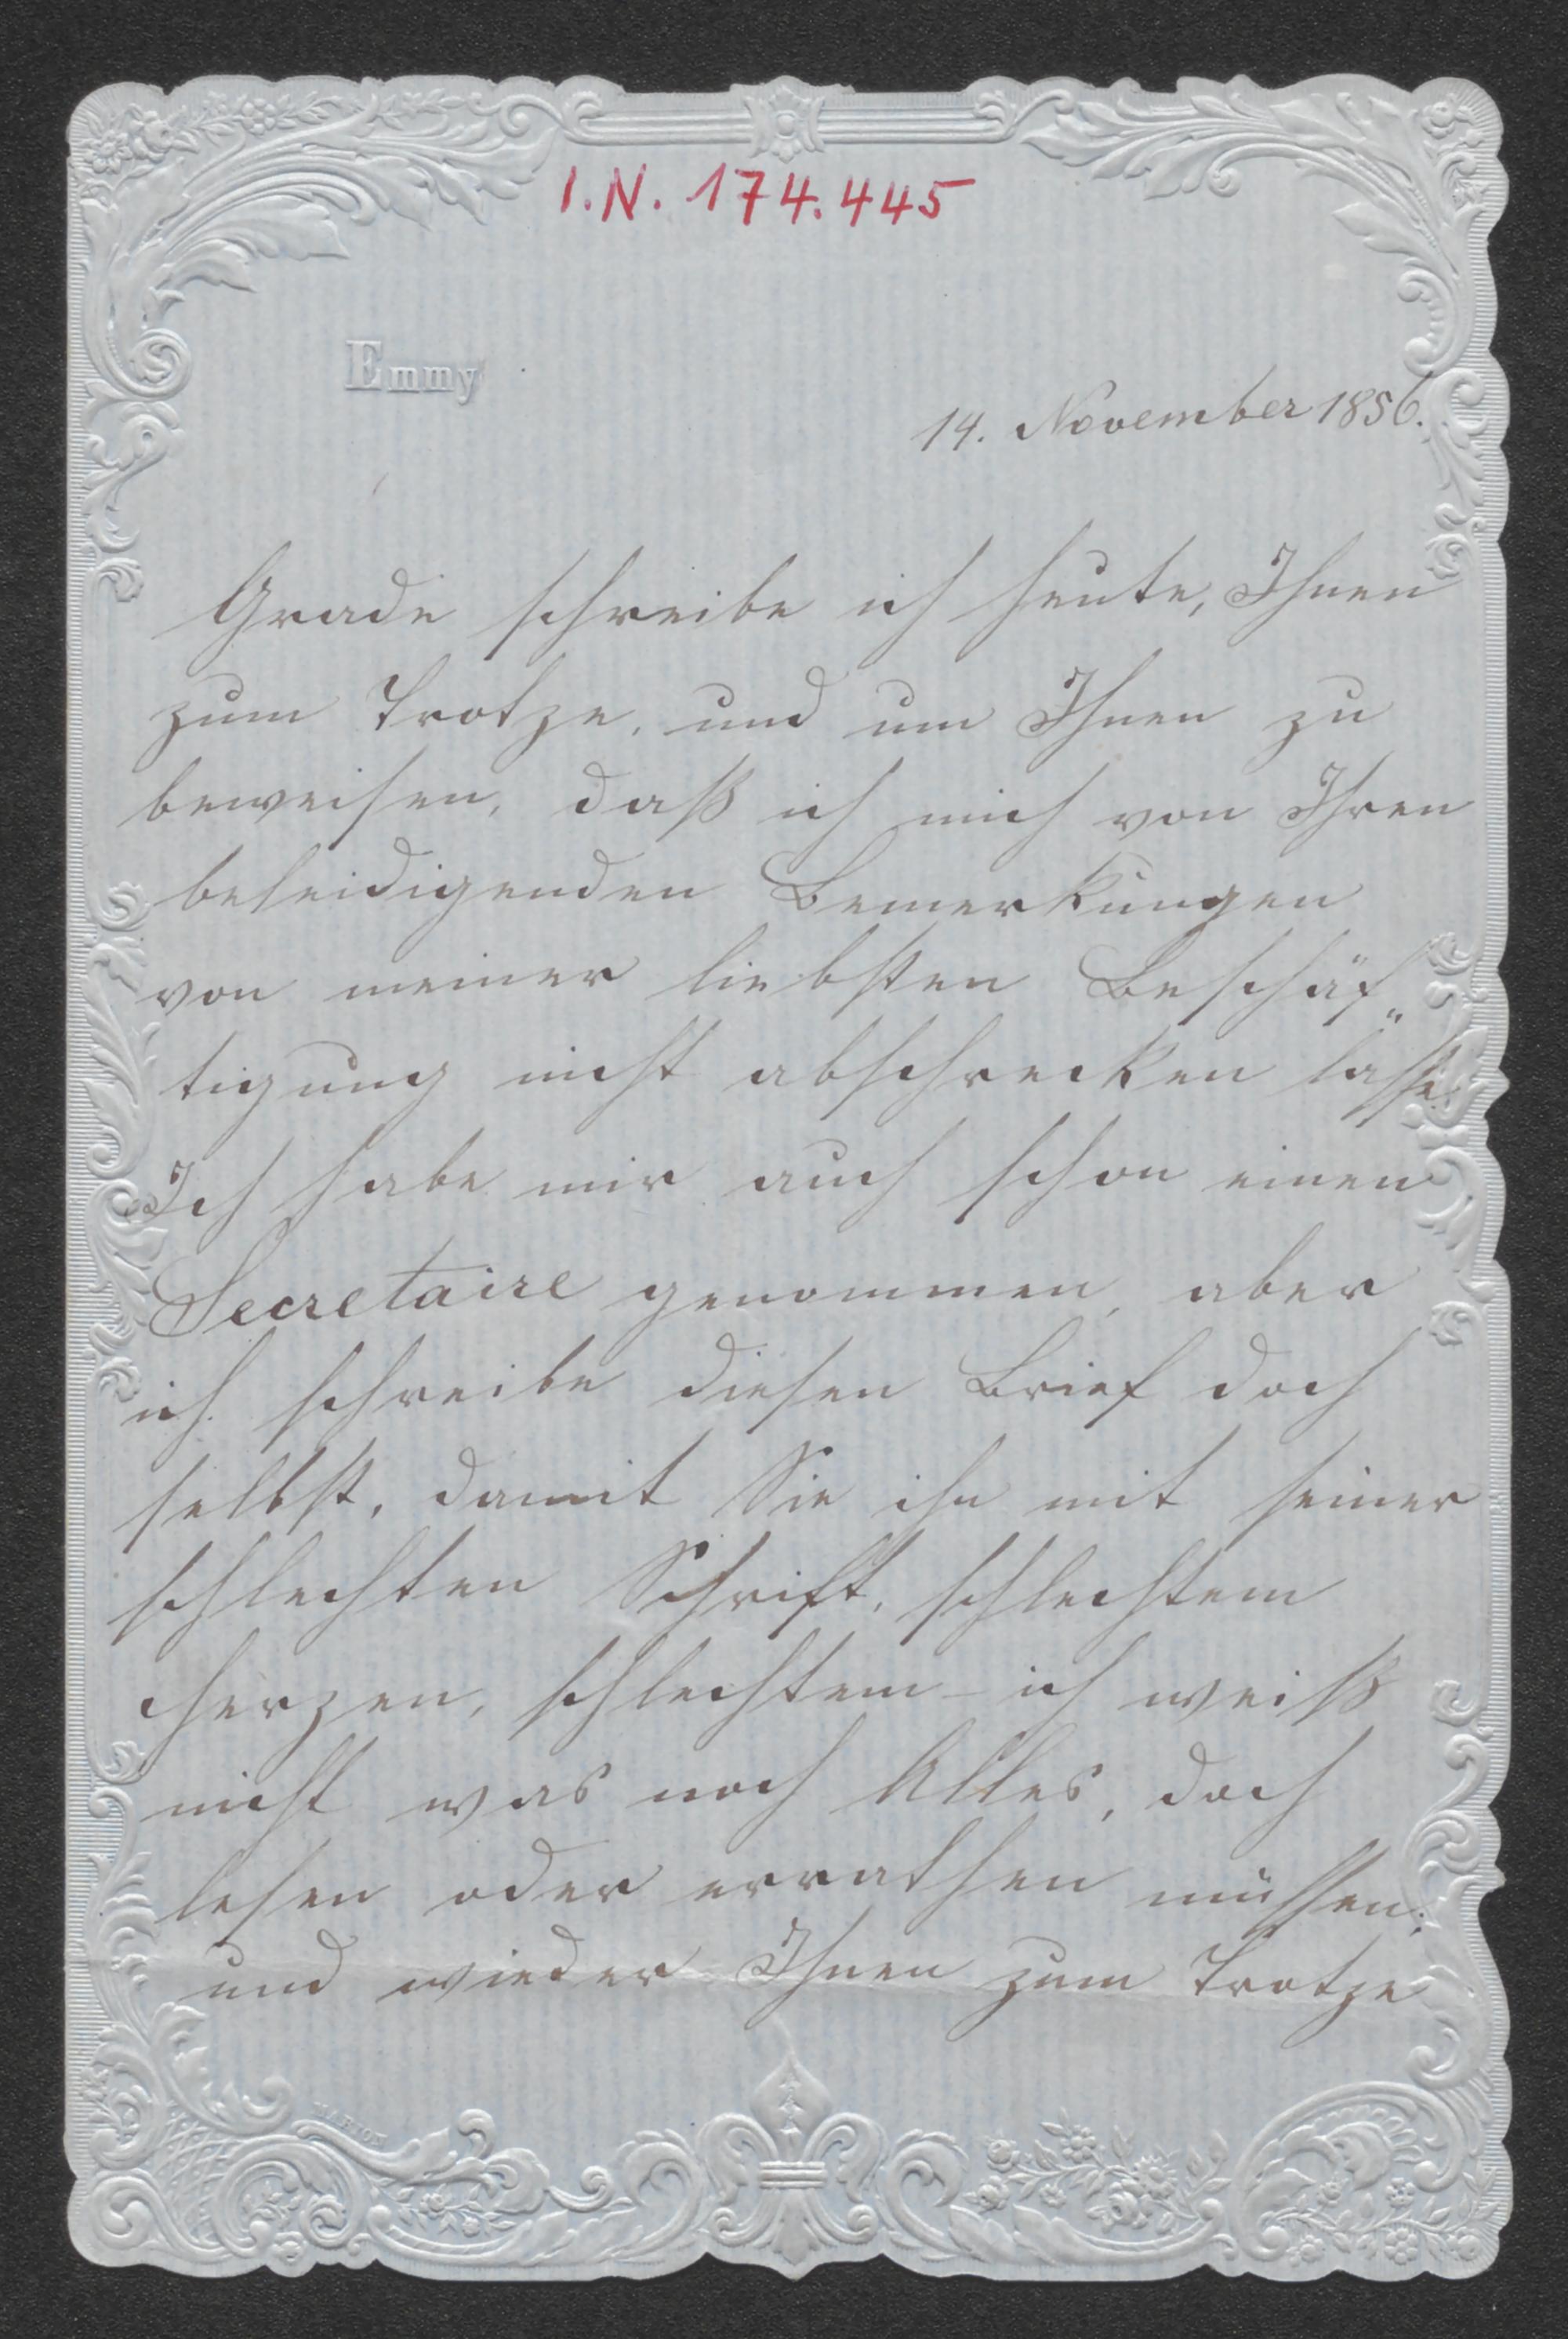 I.N. 174.445
Emmy
14. November 1856.
Grade schreibe ich heute, Ihnen
zum Trotze, und um Ihnen zu
beweisen, daß ich mich von Ihren
beleidigenden Bemerkungen
von meiner liebsten Beschäf„
tigung nicht abschrecken lasse.
Ich habe mir auch schon einen
Secretaire genommen, aber
ich schreibe diesen Brief doch
selbst, damit Sie ihn mit seiner
schlechten Schrift, schlechtem
schlechtem – ich weiß
nicht was noch Alles, doch
lesen oder errathen müssen;
und wieder Ihnen zum Trotze